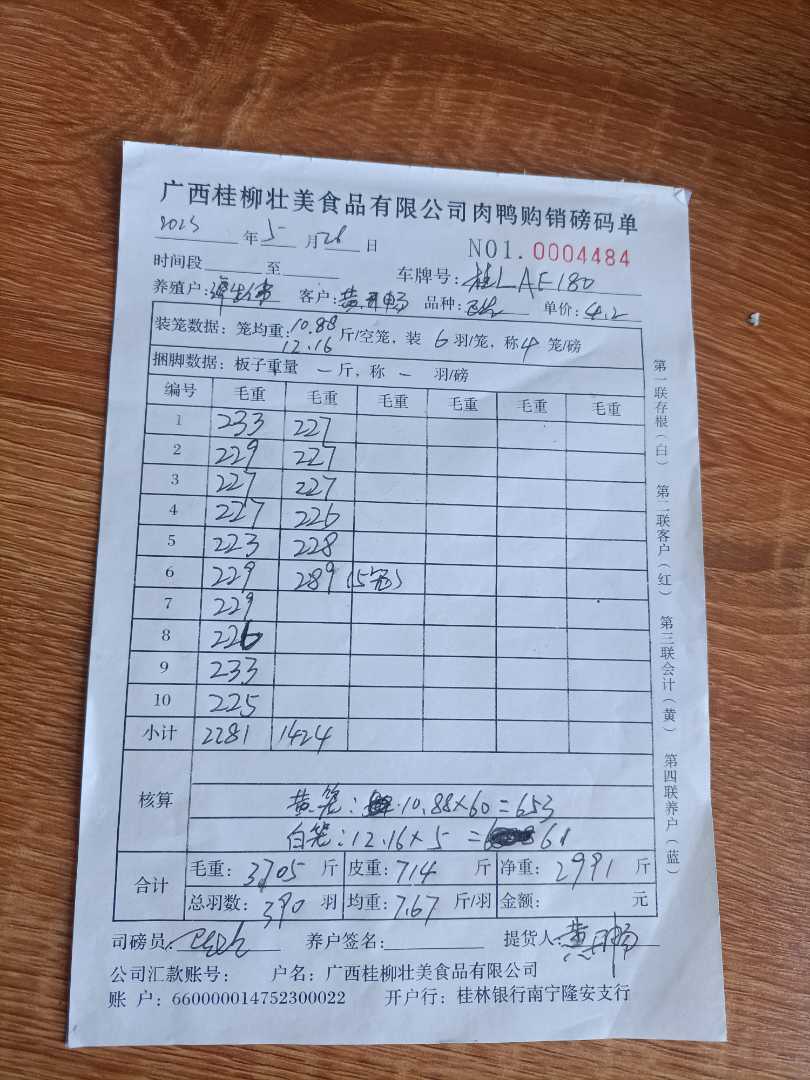 广西桂柳壮美食品有限公司肉鸭购销磅码单
2025 年 5 月 28 日 NO1. 0004484
时间段 至 车牌号: 桂LAF180
养殖户: 客户: 黄开畅 品种: 单价: 4.2
装笼数据: 笼均重: 10.88 12.16 斤/空笼, 装 6 羽/笼, 称 4 笼/磅
捆脚数据: 板子重量 — 斤, 称 — 羽/磅
编号 毛重 毛重 毛重 毛重 毛重 毛重
1 233 227
2 229 227
3 227 227
4 227 226
5 223 228
6 229 289 (5笼)
7 229
8 226
9 233
10 225
小计 2281 1424
核算
黄笼: 10.88×60=653
白笼: 12.16×5 = 61
合计 毛重: 3705 斤 皮重: 714 斤 净重: 2991 斤
总羽数: 390 羽 均重: 7.67 斤/羽 金额: 元
司磅员: 养户签名: 提货人: 黄开畅
公司汇款账号: 户名: 广西桂柳壮美食品有限公司
账 户: 660000014752300022 开户行: 桂林银行南宁隆安支行
第一联存根(白) 第二联客户(红) 第三联会计(黄) 第四联养户(蓝)